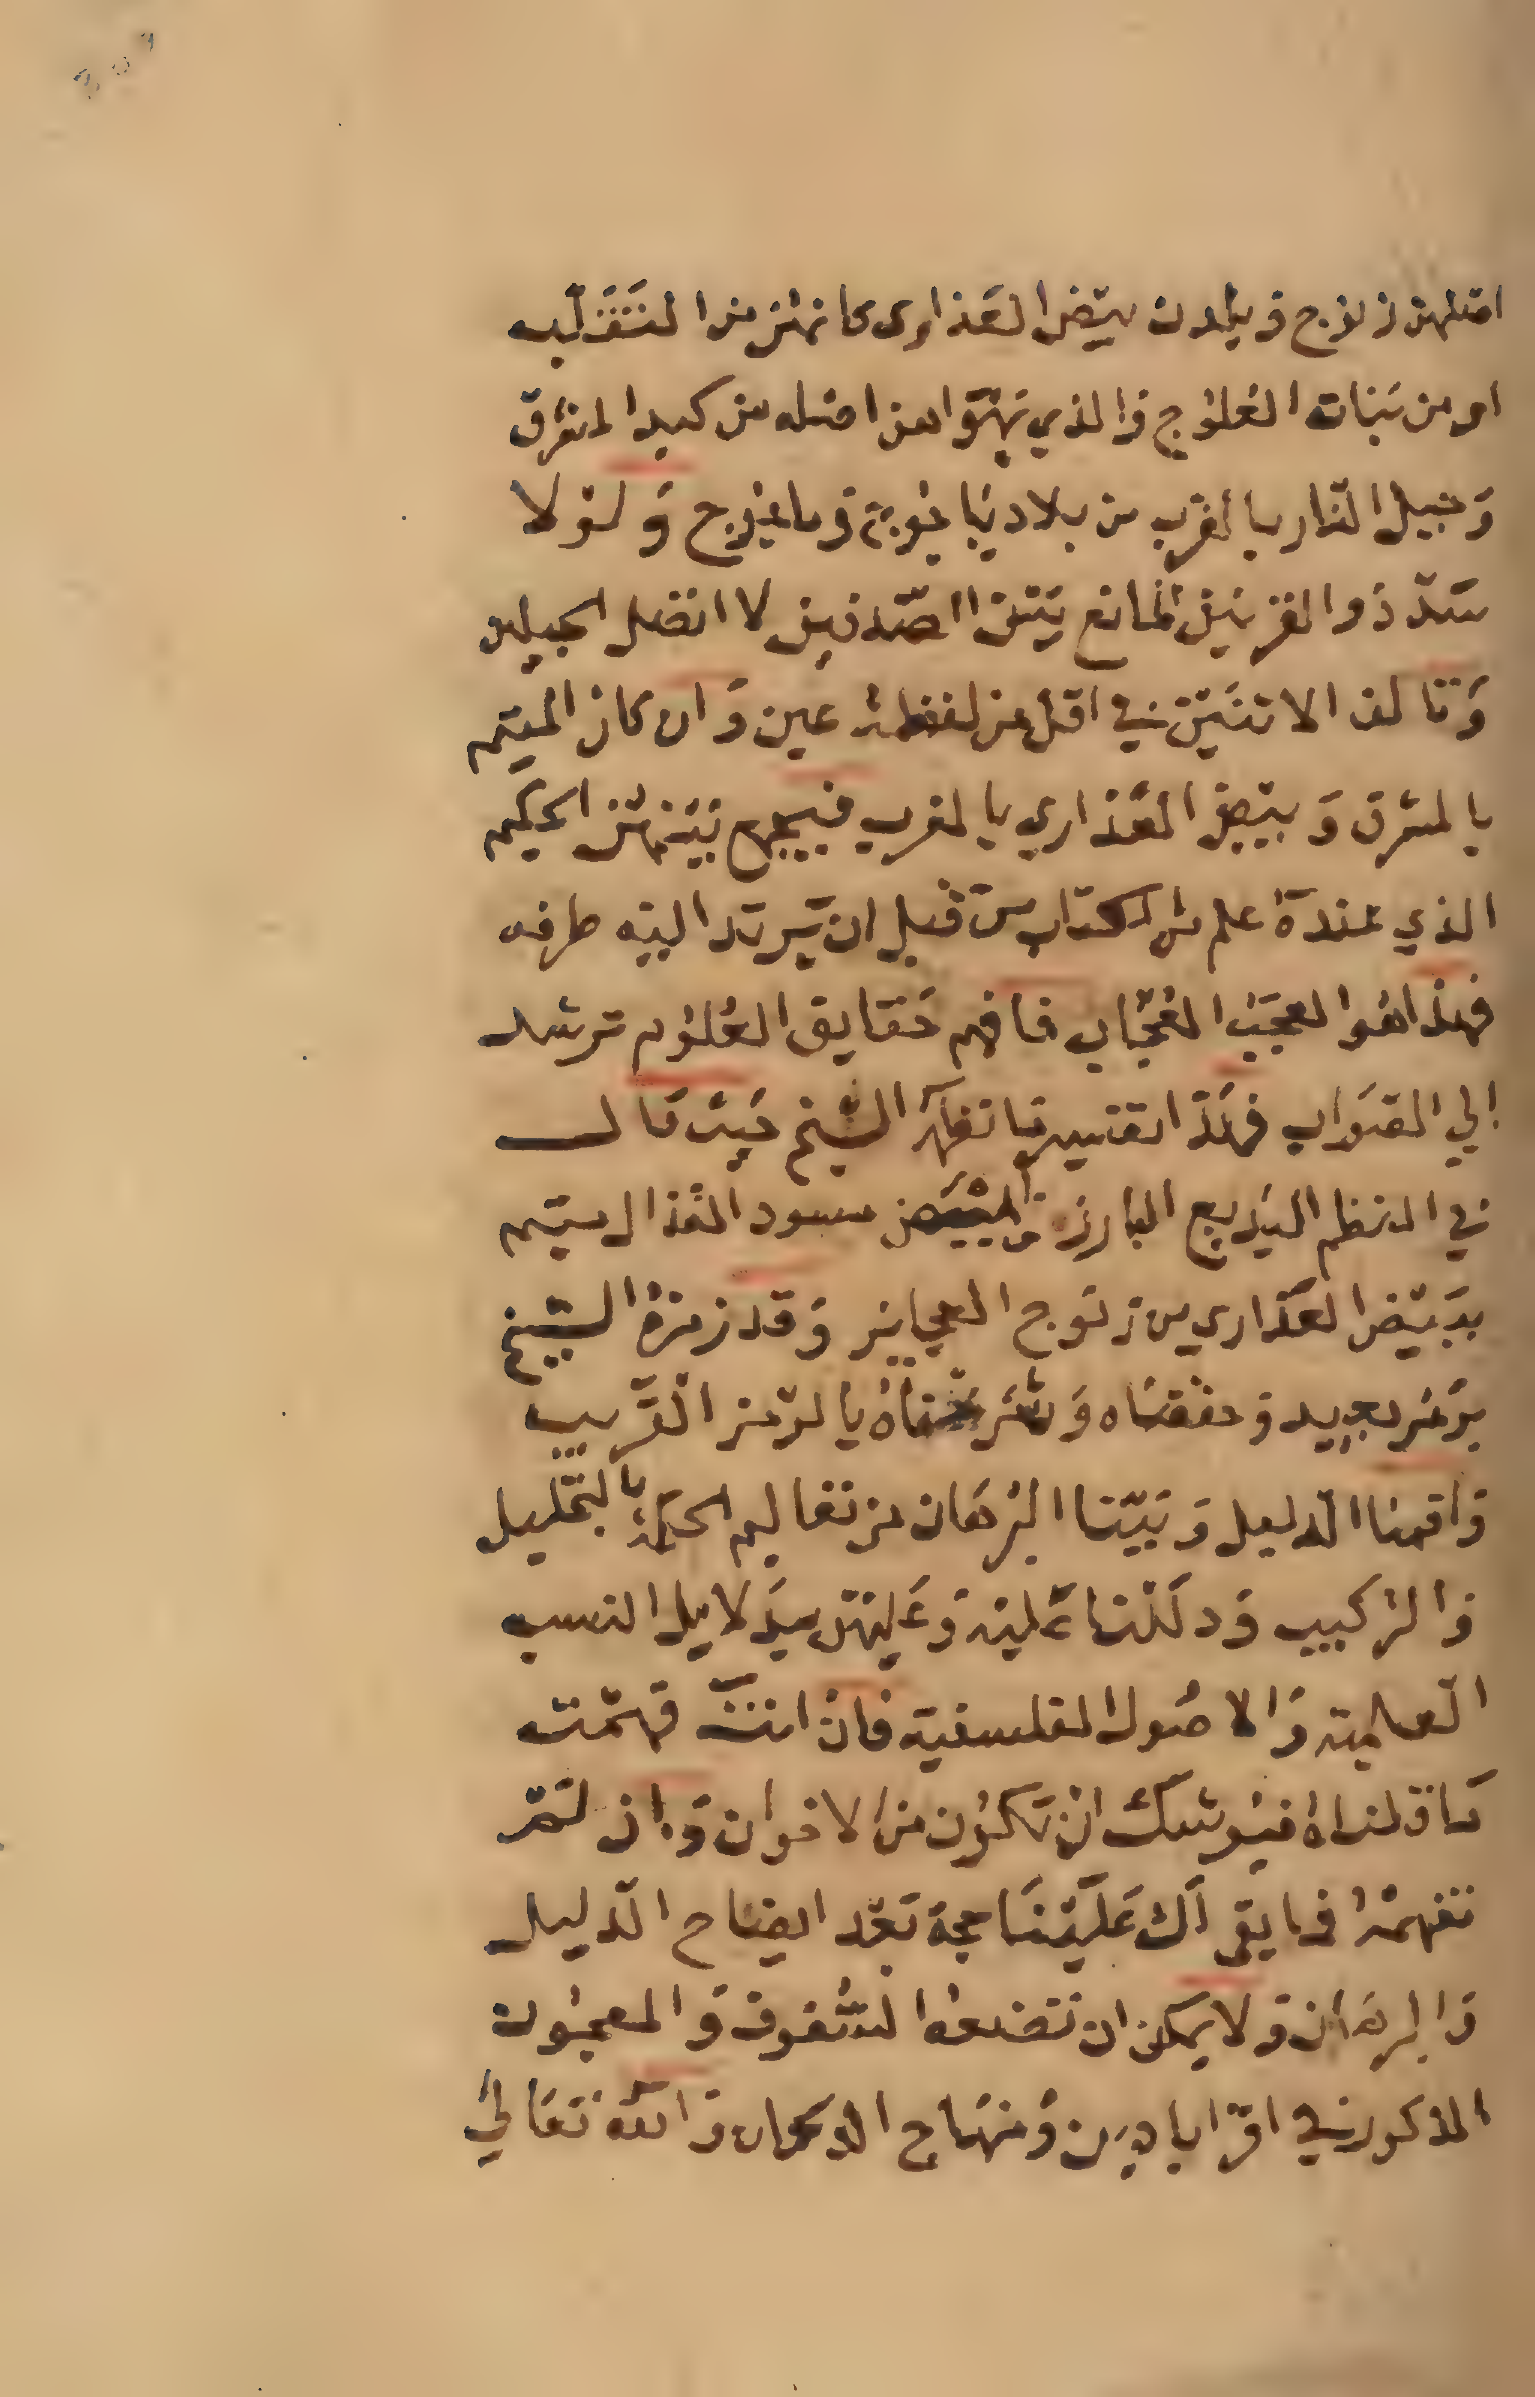 اصلهن زنوج ويلدن بيض العذارى كانهن من الصقالبه
او من بنات العلوج والذي يهوا هن اصله من كبد المشرق
وجبيل النار بالقرب من بلاد ياجوج وماجوج ولولا
سد ذو القرنين المانع بين الصدفين لا اتصل الجبلين
وتالف الاثنين في اقل من لحظة عين وان كان المقيم
بالمشرق وبيض العذاري بالمغرب فيجمع بينهن الحكيم
الذي عندة علم من الكتاب من قبل ان يرتد اليه طرفه
فهذا هوا لعجب العجاب فافهم حقايق العلوم ترشد
الي الصواب فهذا تفسير ما الشيخ حيث قال
في النظم البديع البارز سود القذال متيم
ببيض العذاري من زنوج العجايز وقد رمزة الشيخ
برمز بعيد وحققناه وشرحناه بالرمز القريب
واقمنا الدليل وبينا البرهان من تعاليم الحكمة بالتحليل
والتركيب ودللنا عليه وعليهن بدلايل النسب
العالية والاصول الفلسفية فان انت فهمت
ما قلناه فيوشك ان تكون من الاخوان وان لم
تفهمه فما بقي لك علينا حجة بعد ايضاح الدليل
والبرهان ولا يمكن ان تضع السفوف والمعجون
المذكور في اقرابادين ومنهاج الدكان والله تعالي